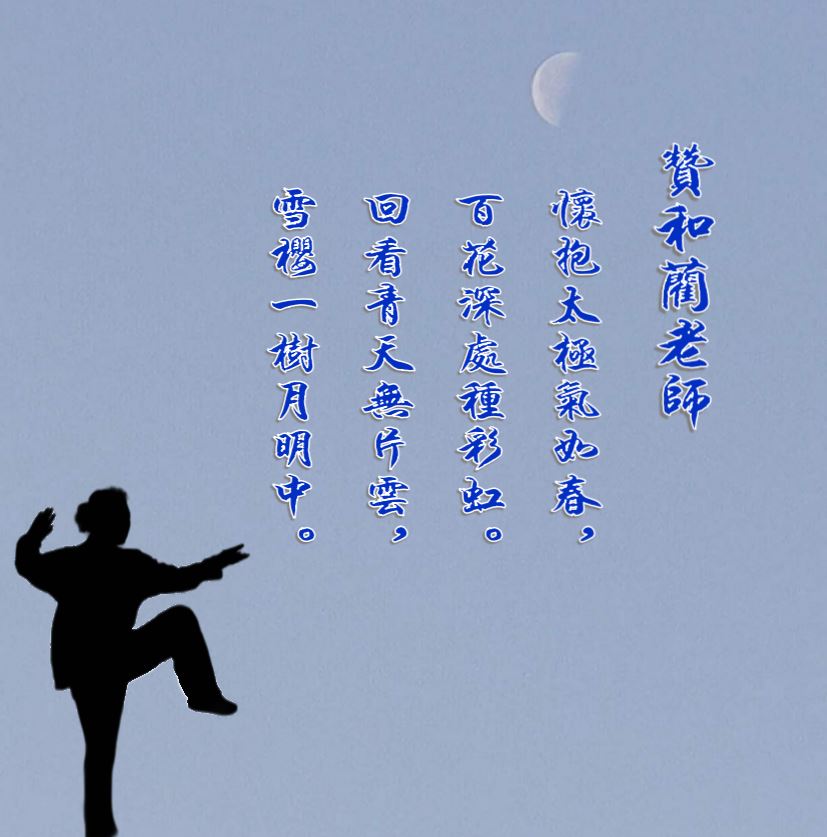 贊和藺老師
懷抱太極氣如春，
百花深處種彩虹。
回看青天無片雲，
雪櫻一樹月明中。